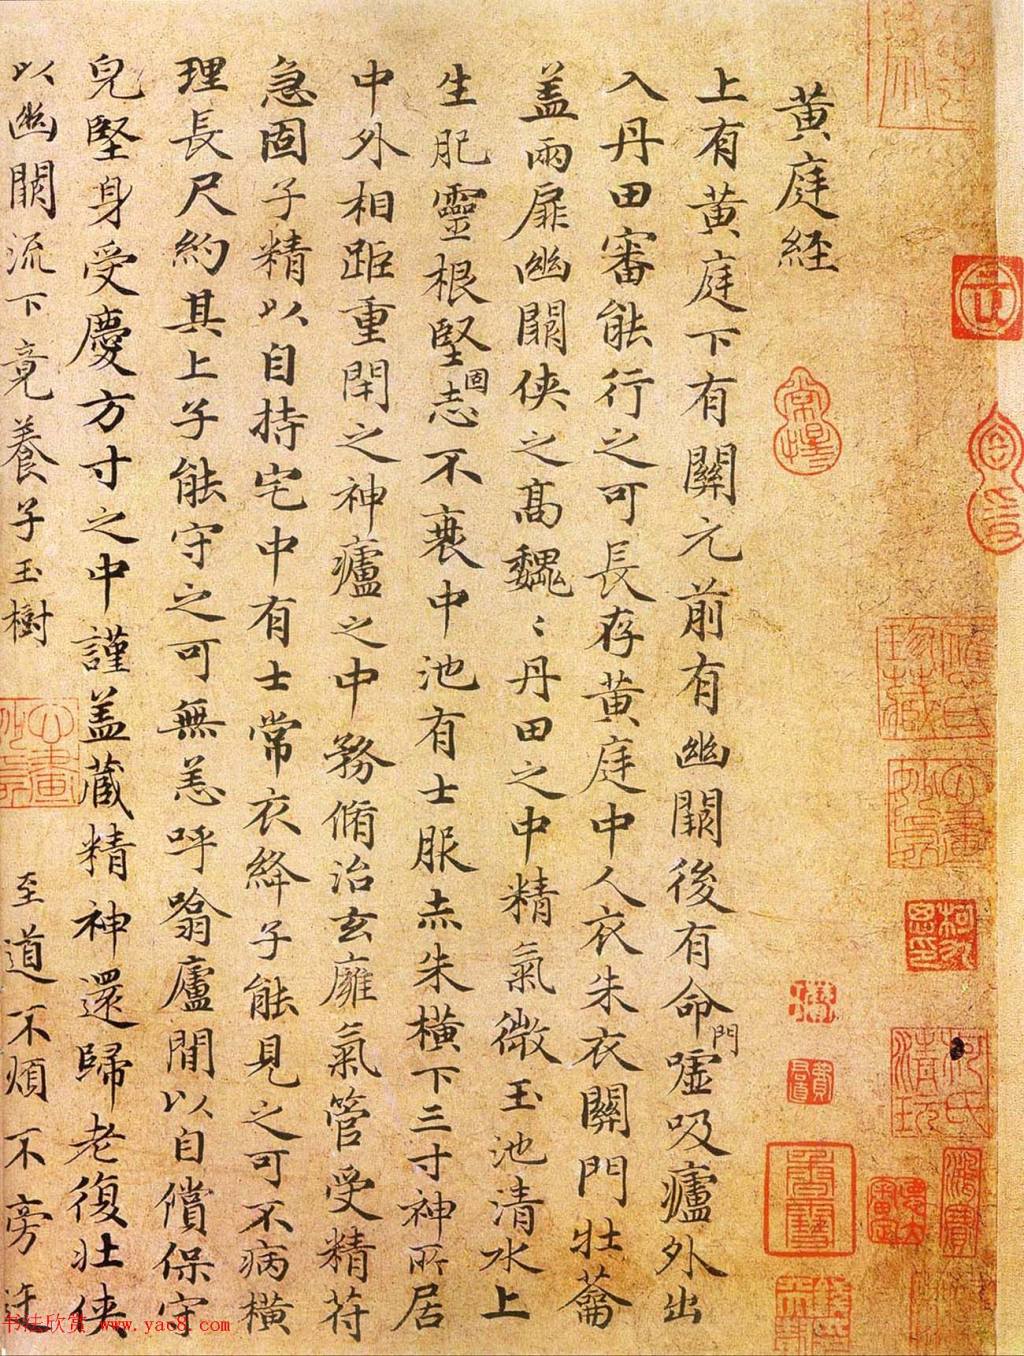 黃庭經
上有黃庭下有關元前有幽闕後有命門噓吸廬外出
入丹田審能行之可長存黃庭中人衣朱衣關門壯蘥
盖兩扉幽關俠之高魏〻丹田之中精氣微玉池清水上
生肥靈根堅固志不衰中池有士服赤朱橫下三寸神所居
中外相距重閇之神廬之中務脩治玄廱氣管受精苻
急固子精以自持宅中有士常衣絳子能見之可不病橫
理長尺約其上子能守之可無恙呼噏廬閒以自償保守
皃堅身受慶方寸之中謹盖藏精神還歸老復壯俠
以幽闕流下竟養子玉樹 至道不煩不旁迕
书法欣赏 www.yac8.com